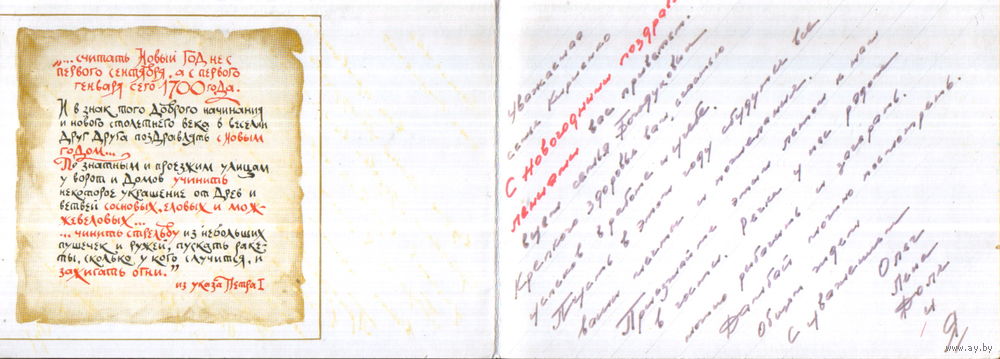 „... считать Новый Год не с
первого сентября, а с первого
генваря сего 1700 года.
И в знак того доброго начинания
и нового столетнего века в веселии
друг друга поздравлять с Новым
годом...
По знатным и проезжим улицам
у ворот и домов учинить
некоторое украшение от древ и
ветвей сосновых, еловых и мож-
жевеловых...
... чинить стрельбу из небольших
пушечек и ружей, пускать раке-
ты, сколько у кого случится, и
зажигать огни."
из указа Петра I
Уважаемая
семья
С Новогодними поздрав
лениями вас приветст
вует семья
Крепкого здоровья вам, счастья
успехов в работе и учебе.
Пусть в этом году сбудутся все
ваши мечты и пожелания.
Приезжайте этим летом к нам
в гости. Речка у нас рядом
можно рыбачить и загорать.
можно посмотреть.
ждем
С уважением
Олег
Лена
и
Я
www.ay.by